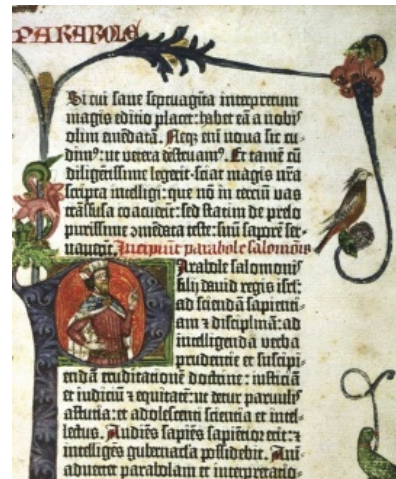 PARABOLE
Si cui sane septuaginta interpretum
magis editio placet: habet eā a nobis
olim emēdatā. Neq; eni noua sic cu-
dimꝰ: ut vetera destruamꝰ. Et tamē cū
diligētissime legerit· sciat magis nr̄a
scripta intelligi: que nō in terciū vas
trāsfusa coacuerīt: sed statim de prelo
purissime ꝯmēdata teste: suū saporē ser-
uauerīt. Incipiūt parabole salomonis
Parabole salomonis
filij dauid regis isrl̄:
ad sciendā sapienti-
am ⁊ disciplinā: ad
intelligendā verba
prudentie et suscipi-
endā eruditationē doctrine: iusticiā
et iudiciū ⁊ equitatē: ut detur paruulis
astutia: et adolescenti sciencia et intel-
lectus. Audiēs sapiēs sapiētior erit: ⁊
intelligēs gubernacla possidebit. Ani-
aduertet parabolam et interpretatio-